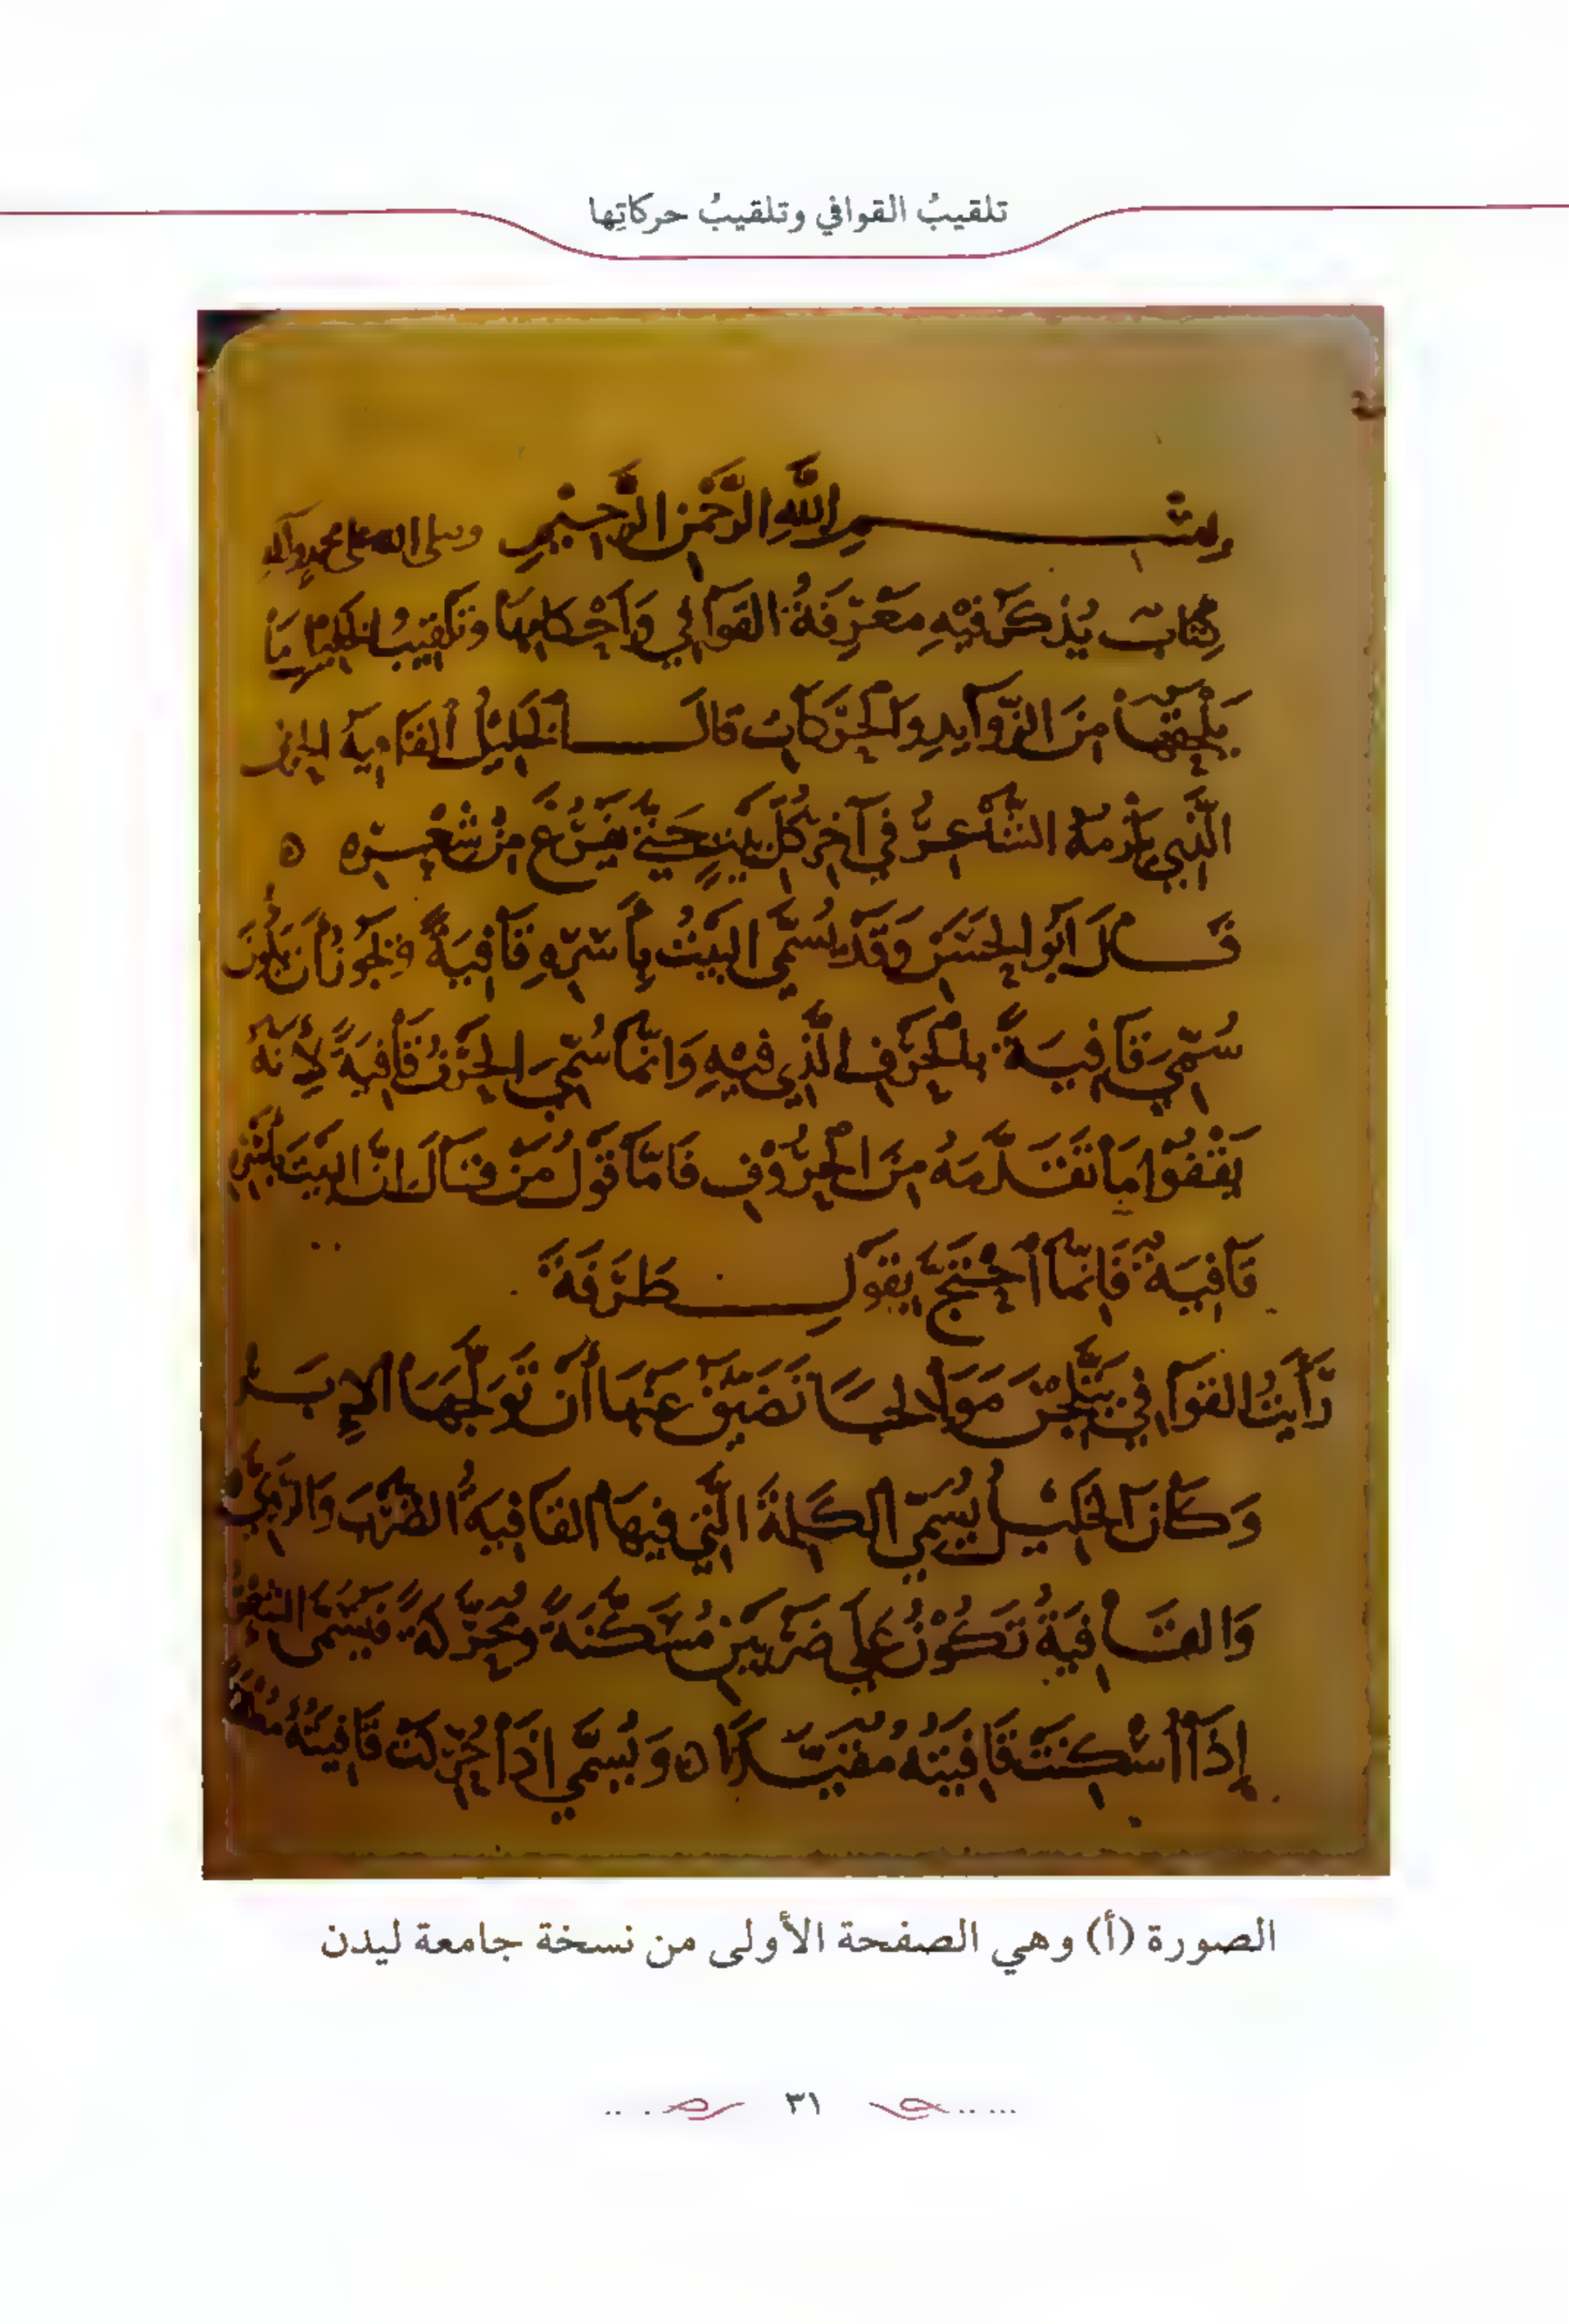 تلقيبُ القوافي وتلقيبُ حركاتِها
بسم الله الرحمن الرحيم وصلى الله على محمد وآله
كتاب يذكر فيه معرفة القوافي وأحكامها وتلقيب الخليل ما
يلحقها من الزوايد والحركات قال الخليل القافية الحرف
الذي يلزمه الشاعر في آخر كل بيت حتى يفرغ من شعره ه
قال ابو الحسن وقد يسمى البيت بأسره قافية فيجوز أن يكون
سمي قافية بالحرف الذي فيه وانما سمي الحرف قافية لأنه
يقفوا ما تقدمه من الحروف فاما قول من قال ان البيت
قافية فإنما أحتج بقول طرفة
رأيت القوافي يتلجن موالجا تضيق عنها أن تولجها الإبر
وكان الخليل يسمي الكلمة التي فيها القافية الضرب
والقافية تكون على ضربين مسكنة ومحركة فيسمى الشعر
إذا أسكنت قافيته مقيدا ه ويسمي اذا حركت قافيته
الصورة (أ) وهي الصفحة الأولى من نسخة جامعة ليدن
٣١